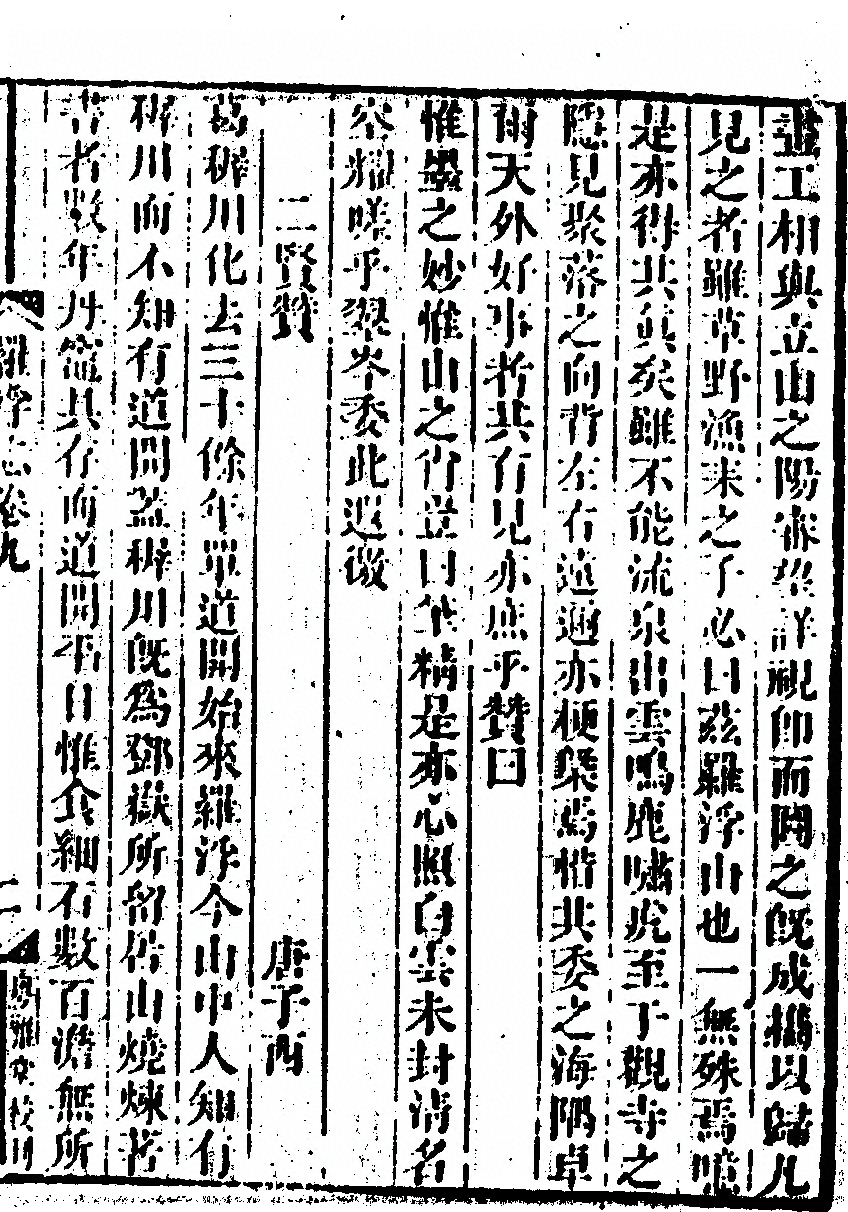 畫工相與立山之陽審望詳視卽而圖之旣成攜以歸凡
見之者雖草野漁耒之子必曰茲羅浮山也一無殊焉噫
是亦得其眞矣雖不能流泉出雲鳴鹿嘯虎至于觀寺之
隱見聚落之向背左右遠邇亦梗槩焉惜其委之海隅卓
爾天外好事者其有見亦庶乎贊曰
惟墨之妙惟山之肖豈曰筆精是亦心照白雲未封淸名
空耀嗟乎翠岑委此遐徼
二賢贊 唐子西
葛稚川化去三十餘年單道開始來羅浮今山中人知有
稚川而不知有道開蓋稚川旣爲鄧嶽所留居山燒煉著
書者數年丹竈具存而道開平日惟食細石數百澹無所
羅浮志卷九 二 粵雅堂校刊